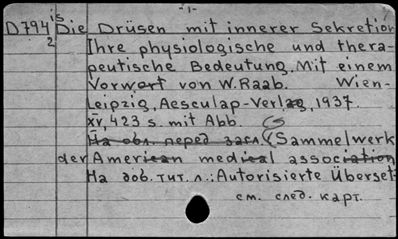 -1-
D794 is Die Drüsen mit innerer Sekretion
2 Ihre physiologische und thera-
peutische Bedeutung. Mit einem
Vorwort von W. Raab. Wien-
Leipzig, Aesculap-Verlag, 1937.
XV, 423 s. mit Abb.
На обл. перед загл.: (Sammelwerk
der American medical association
На доб. тит. л.: Autorisierte Überset-
см. след. карт.